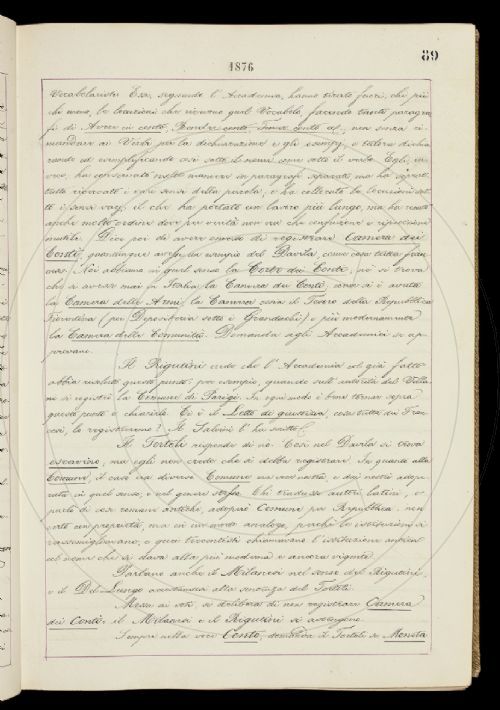 89
1876
Vocabolaristi. Essi, seguendo l'Accademia, hanno tirato fuori, chi più
chi meno, le locuzioni che ricevono quel Vocabolo, facendo tanti paragra-
fi di Avere in conto, Render conto, Tener conto ec., non senza ri-
mandare ai Verbi per la dichiarazione e gli esempj, o talora dichia-
rando ed esemplificando così sotto il nome come sotto il verbo. Egli, in-
vece, ha conservato molti numeri in paragrafi separati, ma ha
tutto i varj sensi della parola, e ha collocato le locuzioni sot-
to i sensi varj, il che ha portato un lavoro più lungo, ma ha recato
anche molto ordine dove per verità non era che confusione e ripetizione
inutile. Dice poi di avere omesso di registrare Camera dei
Conti, quantunque avesse esempio del Davila, come cosa tutta fran-
cese. Noi abbiamo in quel senso la Corte dei Conti; nè si trova
che si avesse mai in Italia la Camera dei Conti, come si è avuta
la Camera delle Armi, la Camera ossia il Tesoro della Repubblica
Fiorentina (poi Depositeria sotto i Granduchi) e più modernamente
la Camera della Comunità. Domanda agli Accademici se ap-
provano.
Il Rigutini crede che l'Accademia abbia già fatto
abbia risoluto questo punto; per esempio, quando sull'autorità del Villa-
ni si registrò la Comune di Parigi. In ogni modo è bene tornar sopra
questo punto e chiarirlo. Ci è il Letto di giustizia, cosa tutta dei Fran-
cesi, lo registreremo? Il Salvini l'ha scritto.
Il Tortoli risponde di no. Così nel Davila si trova
escavino, ma egli non crede che si debba registrare. In quanto alla
Comune, il caso era diverso. Comune era voce nostra, e dai nostri adope-
rata in quel senso, o nel genere stesso. Chi tradusse autori latini, o
parlò di cose romane antiche, adoprò Comune per Repubblica: non
certo con proprietà, ma in un modo analogo, perchè le istituzioni si
rassomigliavano, e quei trecentisti chiamavano l'istituzione antica
col nome che si dava alla più moderna e ancora vigente.
Parlano anche il Milanesi nel senso del Rigutini
e il Del Lungo accostandosi alla sentenza del Tortoli.
Messa ai voti si delibera di non registrare Camera
dei Conti: il Milanesi e il Rigutini si astengono.
Sempre nella voce Conto, domanda il Tortoli se Moneta